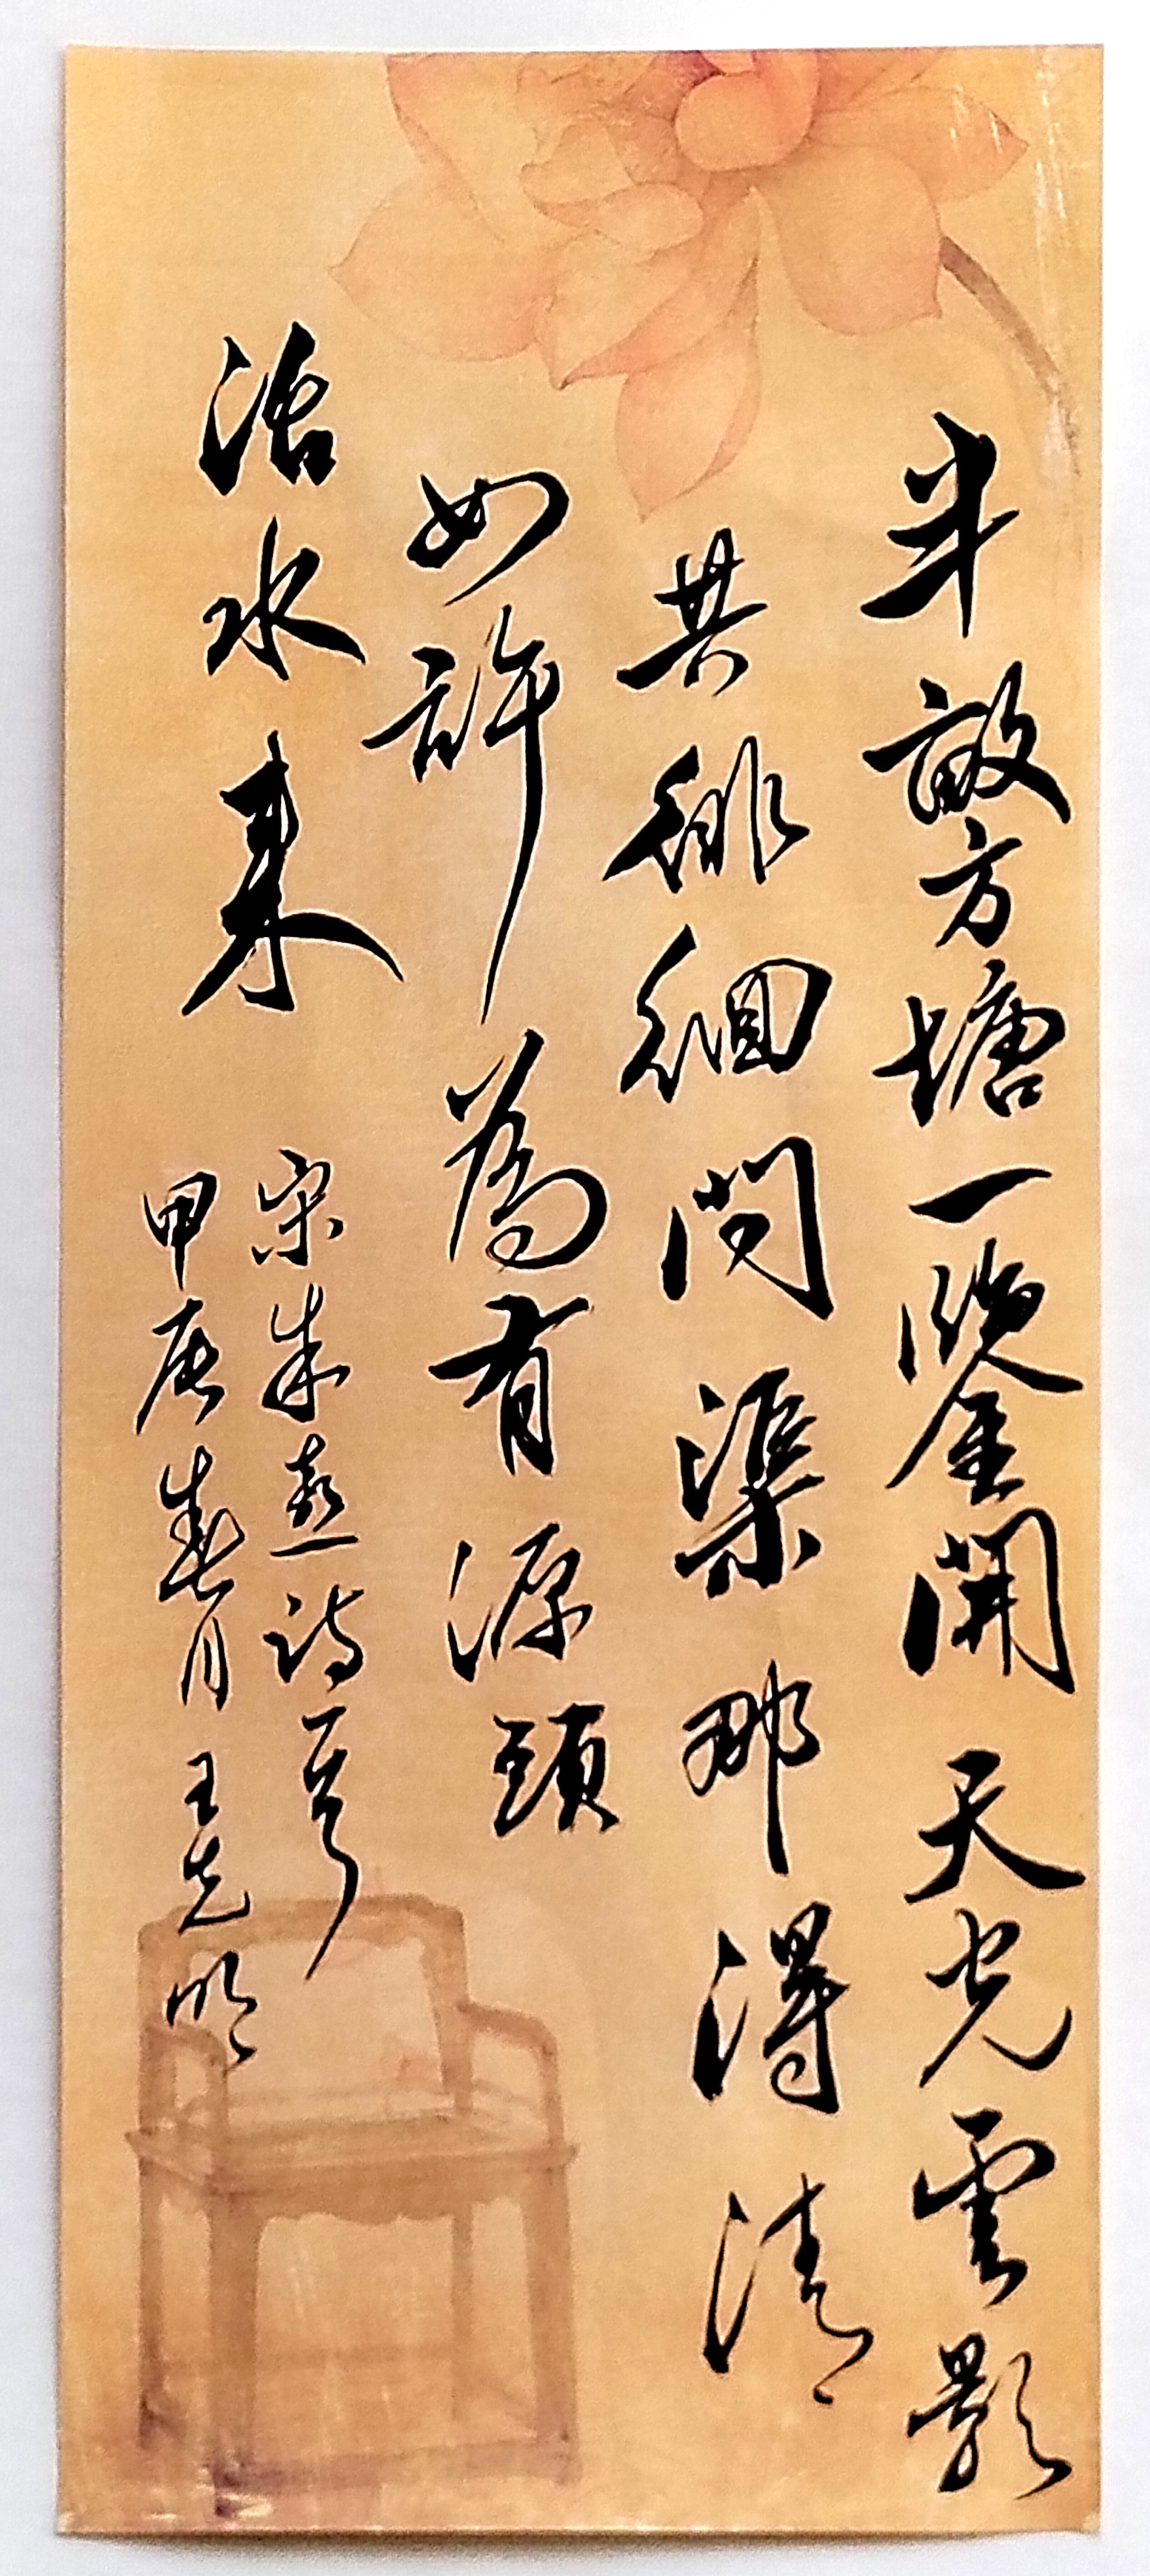 半畝方塘一鑒開天光雲影
共徘徊問渠那得清
如許為有源頭
活水来
宋朱熹詩一首
甲辰春月王先明